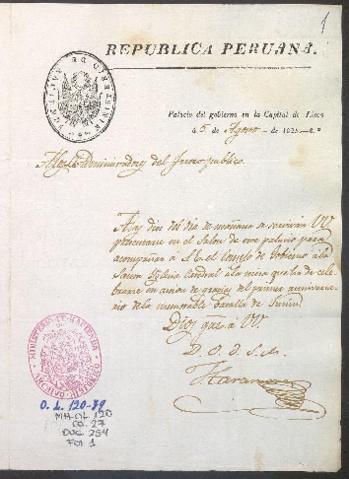 1
REPUBLICA PERUANA.
MINISTERIO DE
Palacio del gobierno en la Capital de Lima
á 5 de Agosto de 1825.
Administradores del Tesoro publico.
A las diez del dia de mañana se serviran VV.
presentarse en el Salon de este palacio para
acompañar á S. E. el Consejo de Gobierno á la
Santa Yglesia Catedral á la misa que ha de cele-
brarse en accion de gracias del primer aniversa-
rio de la memorable batalla de Junin.
Dios gue. á VV.
MINISTERIO DE HACIENDA
ARCHIVO HISTORICO
O. L. 120-79
MH-OL 120
CA. 27
DOC 254
FOL 1